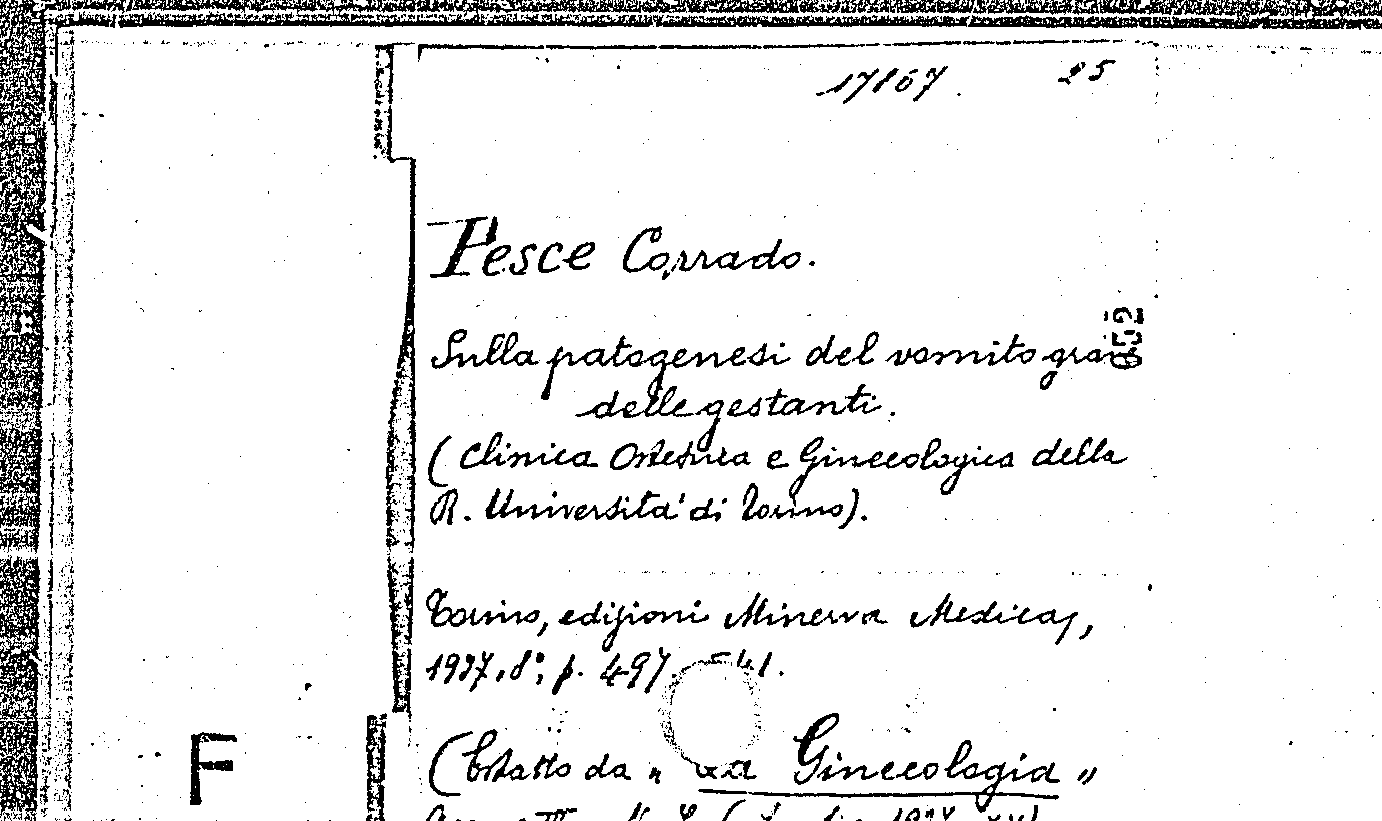 17867 25
Pesce Corrado.
Sulla patogenesi del vomito
delle gestanti.
(Clinica Ostetrica e Ginecologica della
R. Università di Torino).
652
Torino, edizioni Minerva Medica,
1937, 8°, p. 497-541.
(Estratto da "La Ginecologia"
F